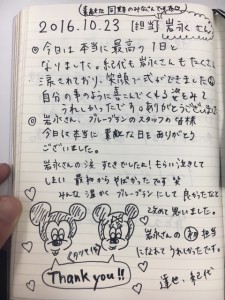 2016.10.23 [担当] 岩永さん
◎今日は本当に最高の1日と
なりました。紀代も岩永さんもたくさん
涙されており、笑顔で式ができました
自分の事のように喜んでくれる姿をみて
うれしかったです。ありがとうございました
◎岩永さん、ブループランのスタッフの皆様
今日は本当に素敵な日をありがとう
ございました。
岩永さんの涙 すてきでしたぁ!もらい泣きして
しまい 最初からやばかったです 笑
みんな温かく ブループランにして良かったなぁと
改めて思いました。
岩永さんの初担当
になれてうれしかったです。
Thank you!!
達也・紀代